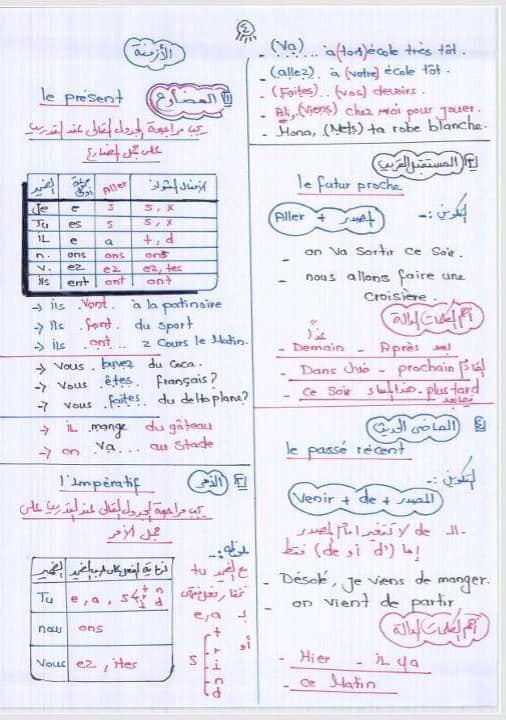 ٤
الأزمنة
١ المضارع le présent
يجب مراجعة الجدول التالى عند التدريب
على جمل المضارع
الضمير Aller
Je e s s, x
Tu es s s, x
IL e a t, d
n. ons ons ons
v. ez ez ez, tes
ils ent ont ont
→ ils .vont. à la patinoire
→ Ils .font. du sport
→ ils .ont... 2 cours le Matin.
→ Vous .buvez du Coca.
→ Vous .êtes. français?
→ vous .faites. du deltaplane?
→ iL .mange du gâteau
→ on .va... au Stade
٢ الأمر l'impératif
يجب مراجعة الجدول التالى عند التدريب على
جمل الأمر
الضمير
Tu e, a, s
nous ons
Vous ez, ites
ملحوظة:-
مع الضمير tu
e, a
أو
s
t
r
i
n
d
- (Va) ... à (ton) école très tôt.
- (allez). à (votre) école tôt.
- (Faites).. (vos) devoirs.
- Ali, (viens) chez moi pour jouer.
- Mona, (Mets) ta robe blanche.
٣ المستقبل القريب
le futur proche
التكوين:-
Aller + المصدر
- on va sortir ce soir.
- nous allons faire une
croisière.
أهم الكلمات الدالة
غداً
- Demain - Après بعد
- Dans خلال - prochain القادم
- ce soir هذا المساء - plus tard
فيما بعد
الماضى الحديث
le passé récent
التكوين:-
Venir + de + المصدر
- الـ de لا تتغير أمام المصدر
إما (de أو d') فقط
- Désolé, je viens de manger.
- on vient de partir.
أهم الكلمات الدالة
- Hier - iL ya
- ce Matin